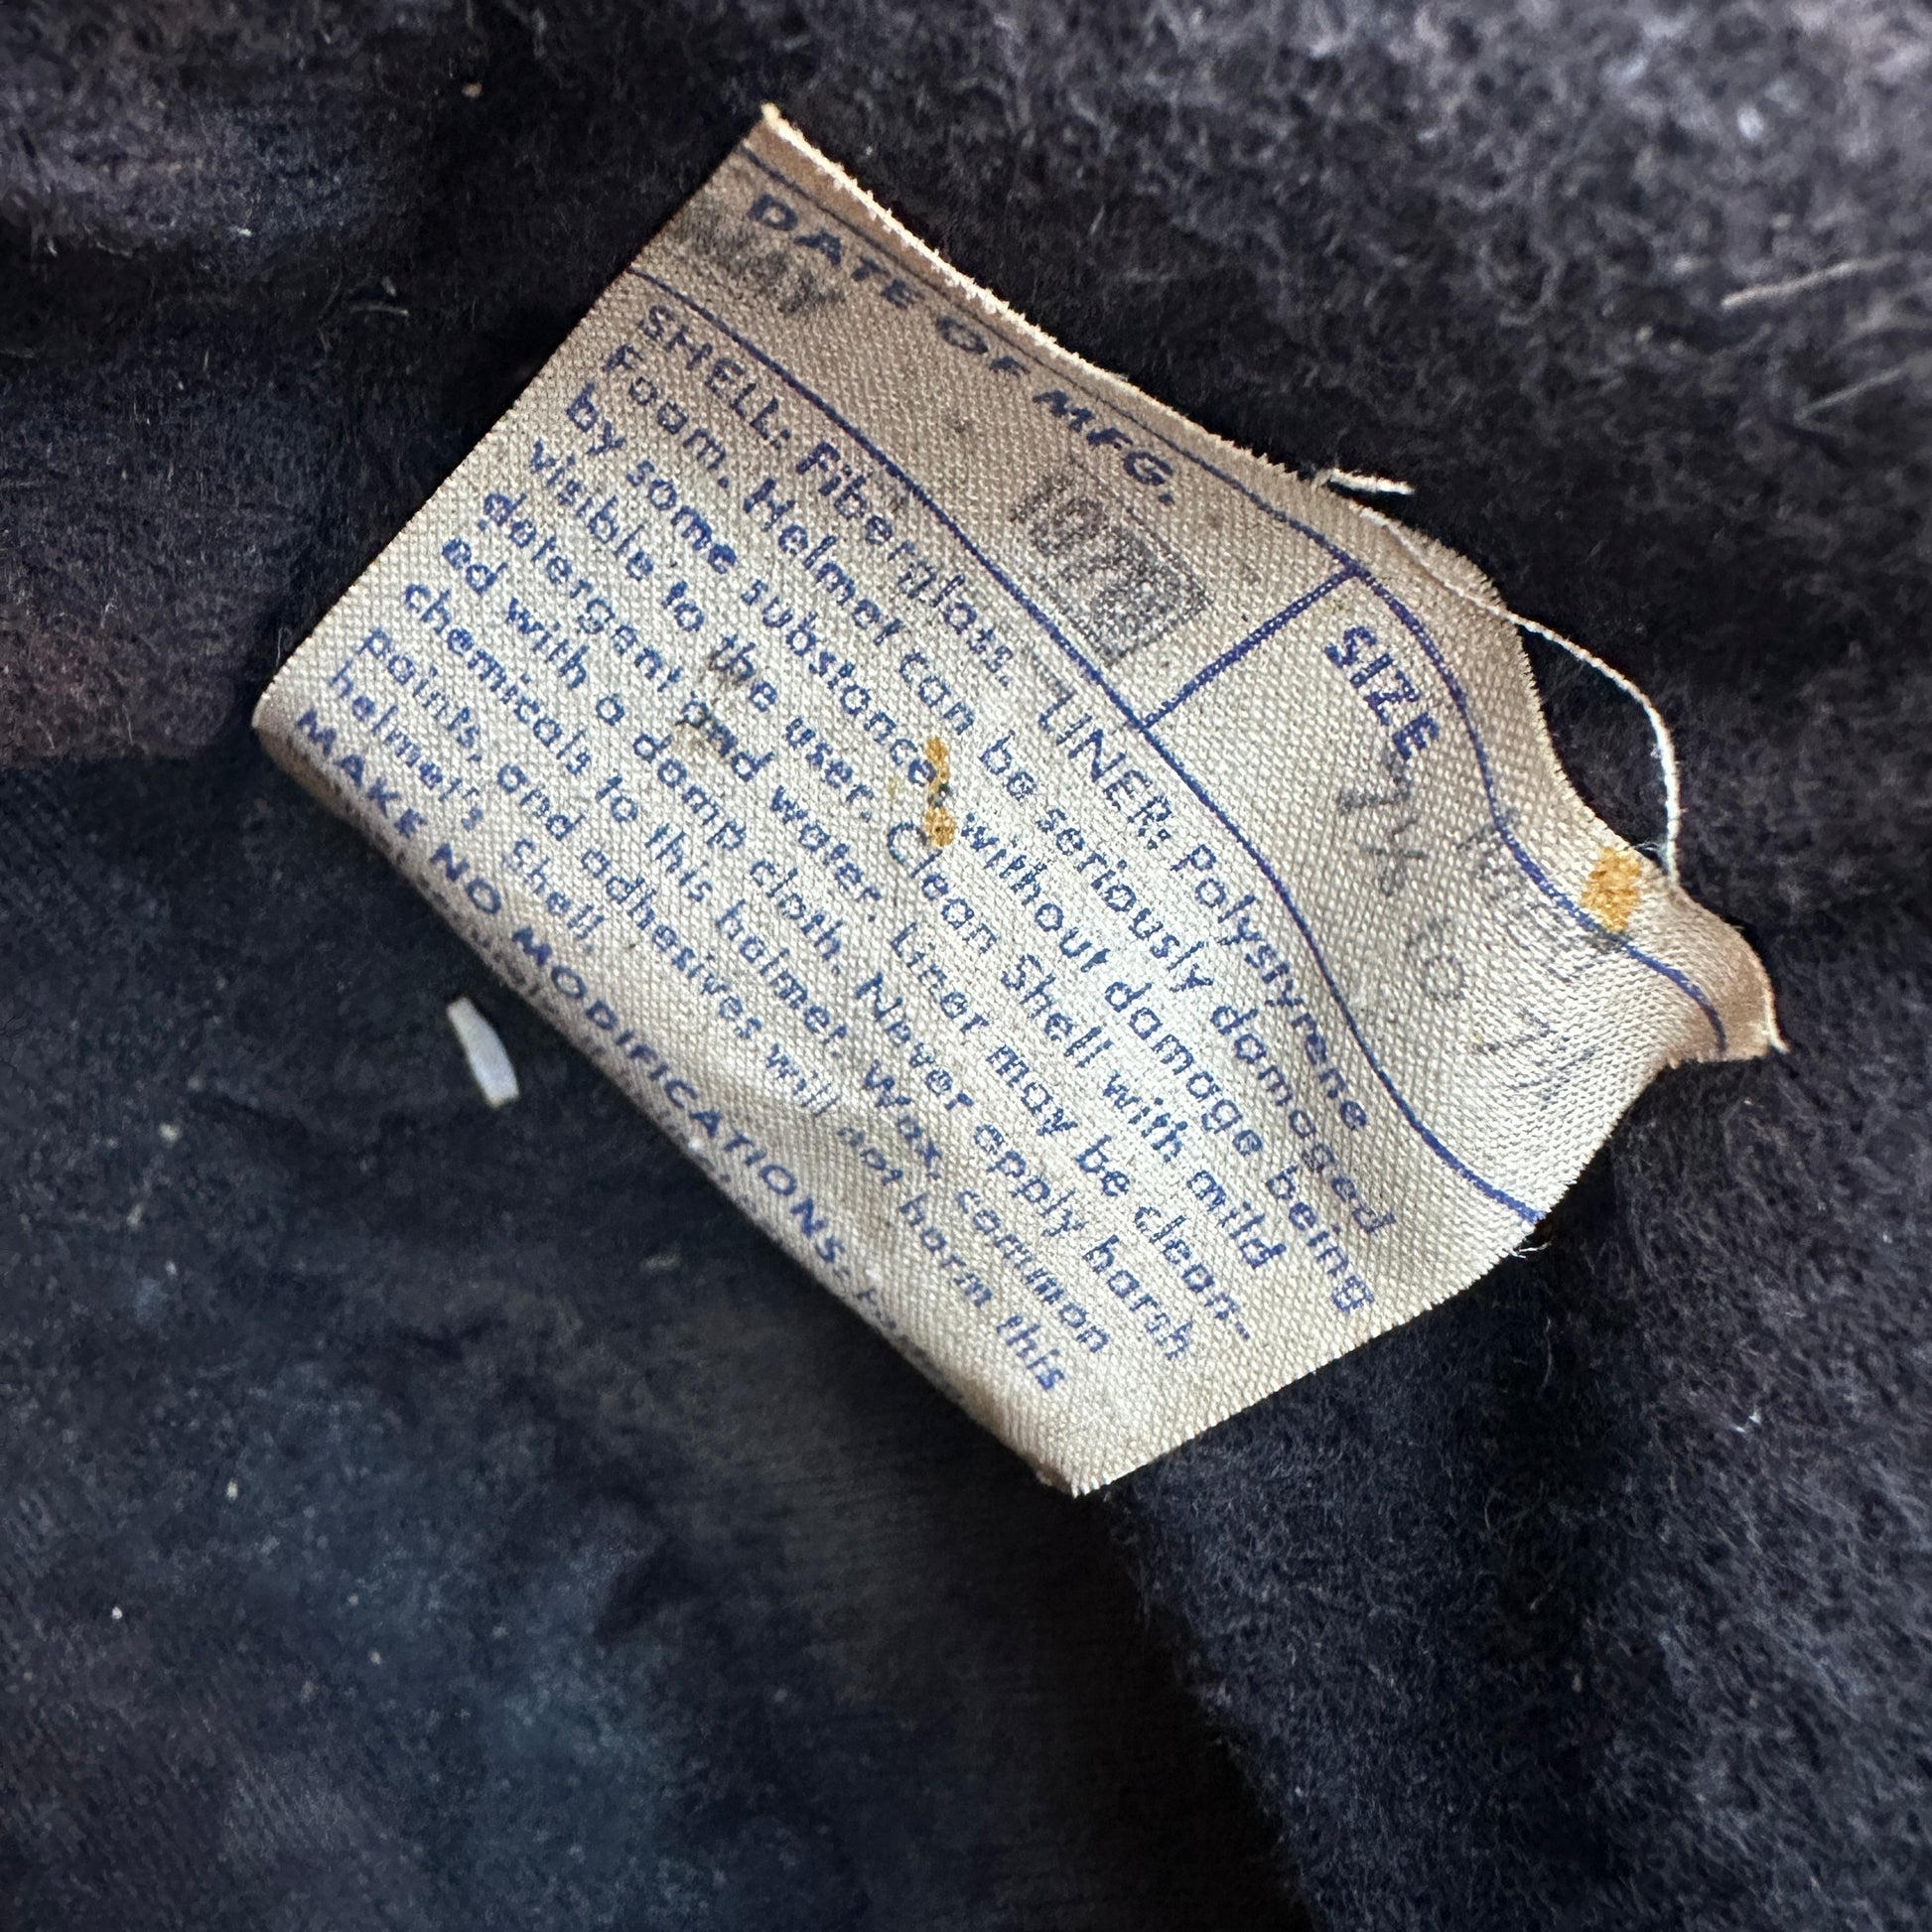 DATE OF MFG.
SIZE
SHELL: Fiberglass. LINER: Polystyrene
Foam. Helmet can be seriously damaged
by some substances without damage being
visible to the user. Clean Shell with mild
detergent and water. Liner may be clean-
ed with a damp cloth. Never apply harsh
chemicals to this helmet. Wax, common
paints, and adhesives will not harm this
helmet's Shell.
MAKE NO MODIFICATIONS: